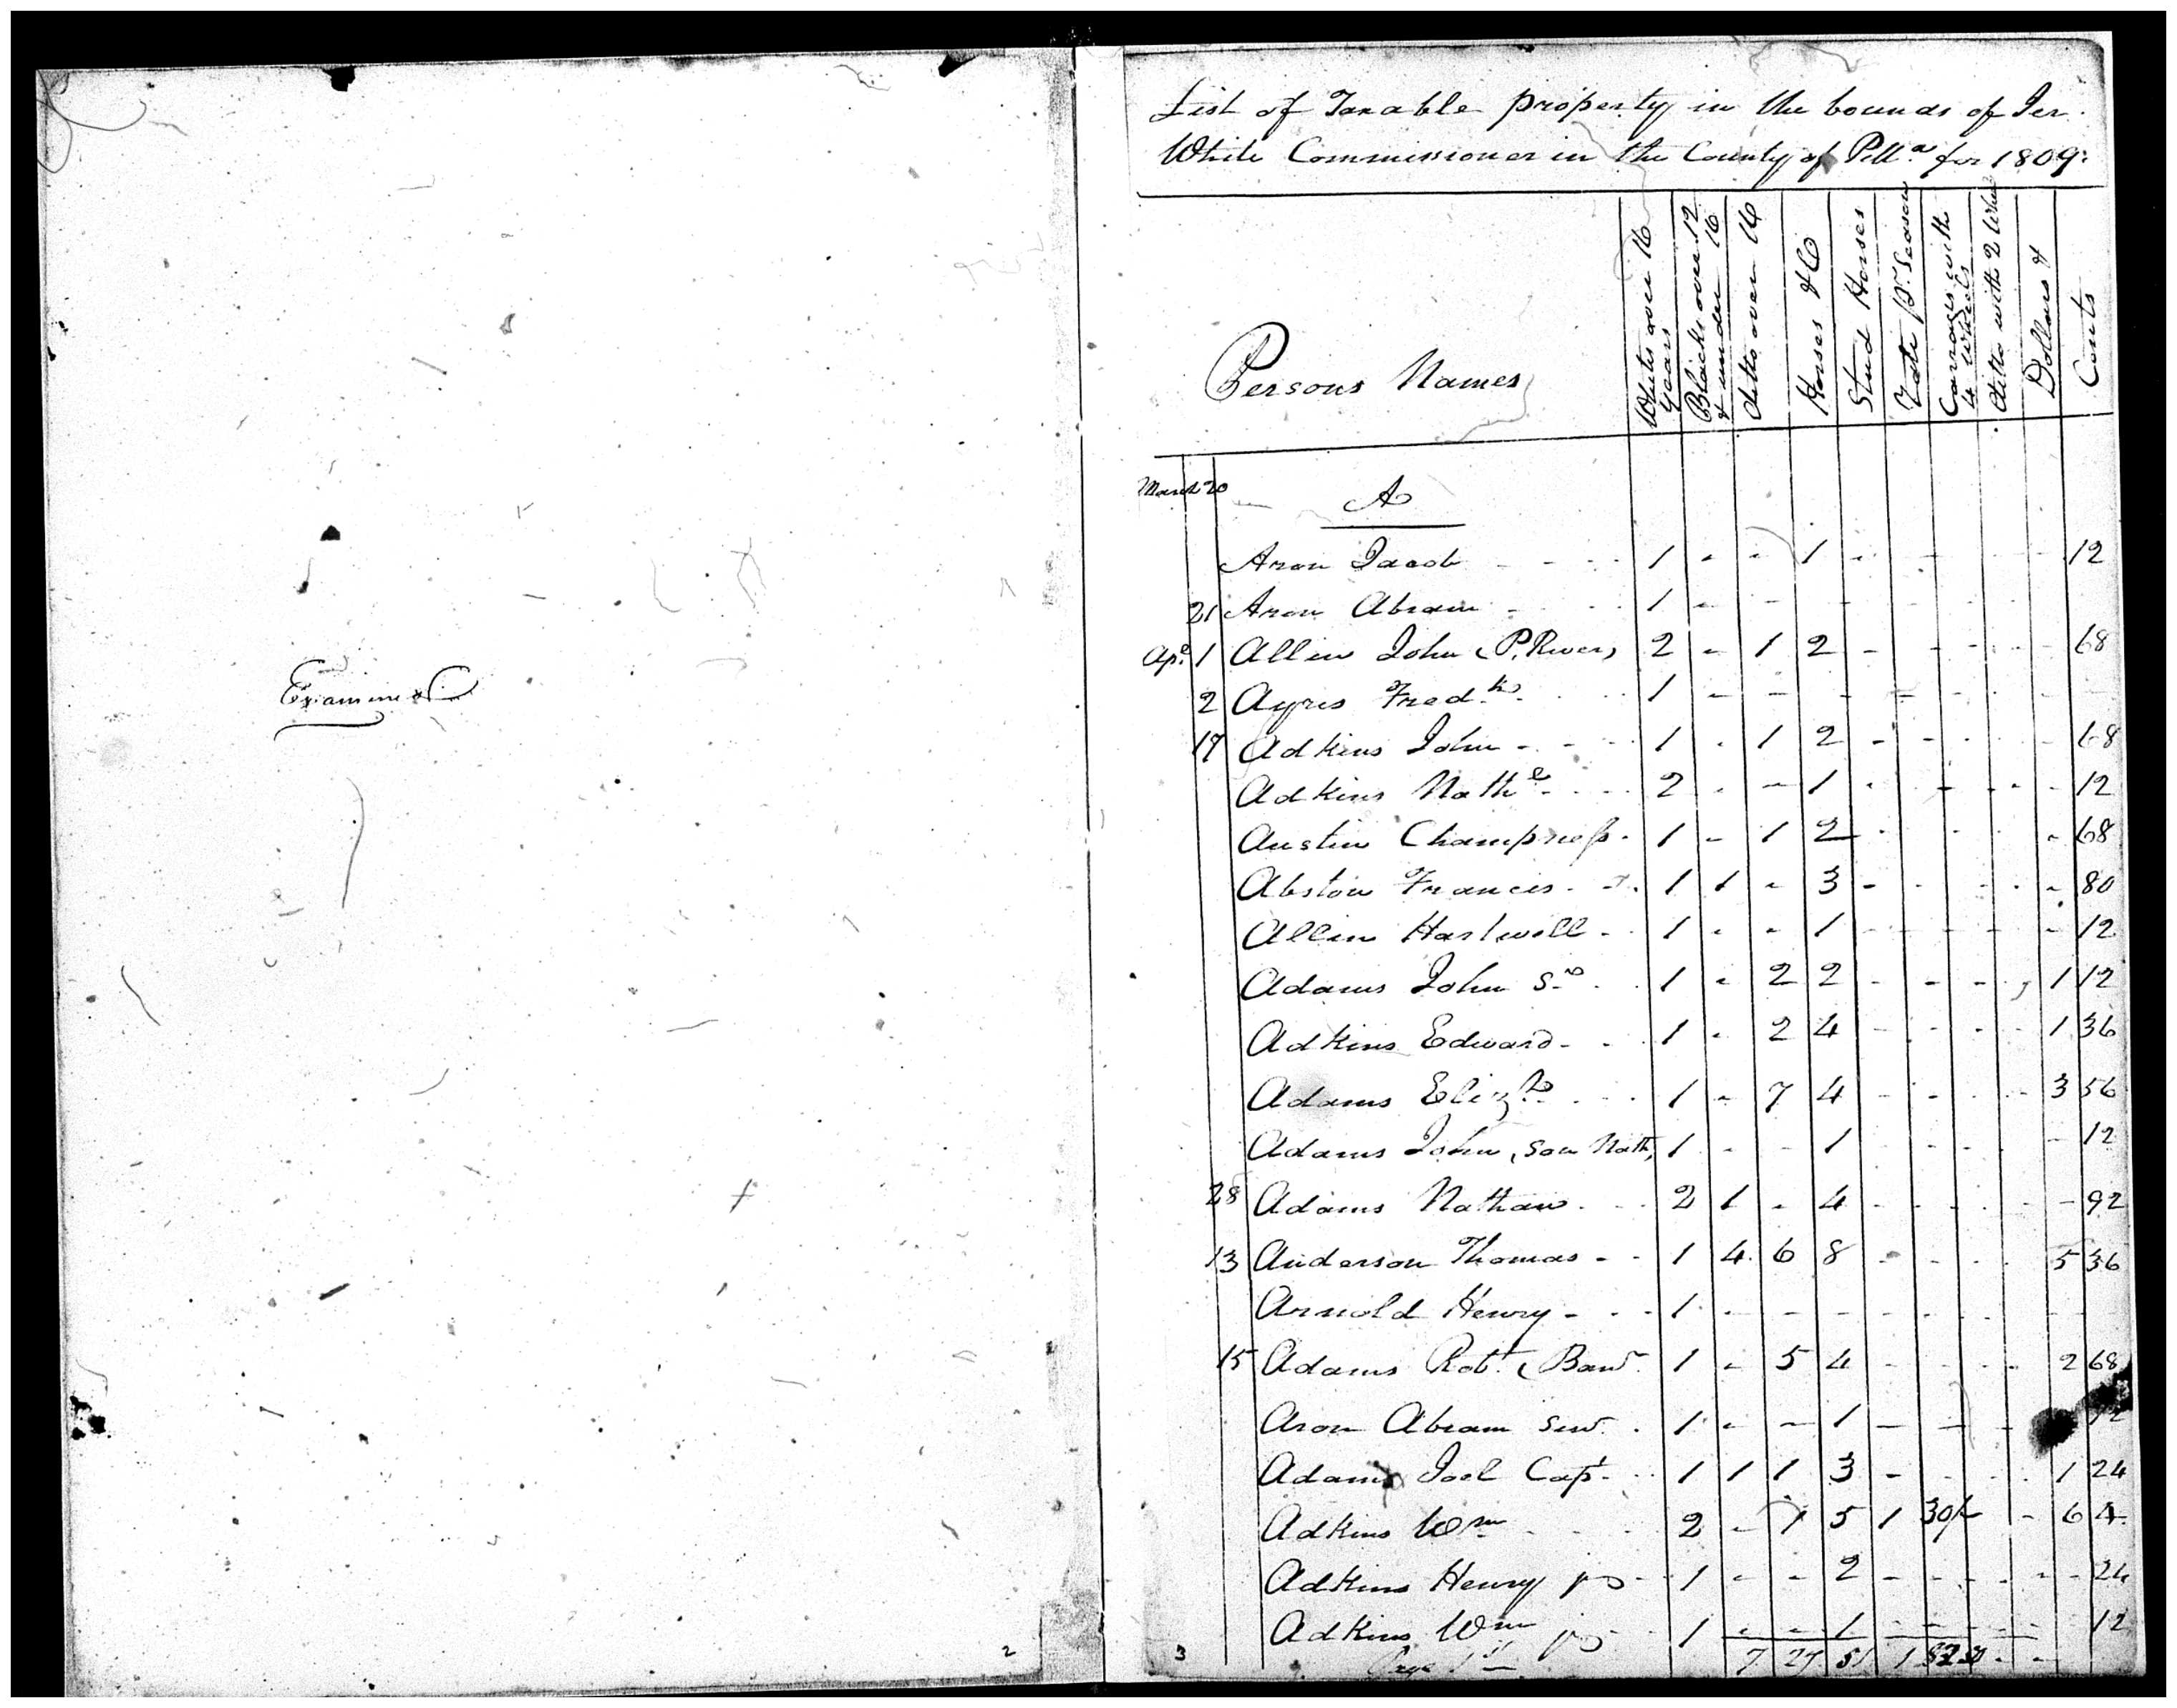 Examined
List of Taxable property in the bounds of Jer.
White Commissioner in the County of Pitt.a for 1809:
Persons Names
Whites over 16 years
Blacks over 12 & under 16
ditto over 16
Horses &C
Stud Horses
Rate pr. Season
Carriages with 4 wheels
ditto with 2 Whee
Dollars &
Cents
March 20 A
Aron Jacob - - - - 1 - - 1 - - - - - 12
21 Aron Abram - - - 1 - - - - - - -
Ap.l 1 Allin John (P. River) 2 - 1 2 - - - - - 68
2 Ayres Fred.k - - - 1 - - - - - - -
17 Adkins John - - - - 1 - 1 2 - - - - 68
Adkins Nath.l - - - - 2 - - 1 - - - - - 12
Austin Champness - 1 - 1 2 - - - - 68
Abston Francis - - 1 1 - 3 - - - - - 80
Allin Hartwell - - 1 - - 1 - - - - - 12
Adams John Sr - - 1 - 2 2 - - - - 1 12
Adkins Edward - - - 1 - 2 4 - - - - 1 36
Adams Eliz.h - - - 1 - 7 4 - - - - 3 56
Adams John (son Nath) 1 - - 1 - - - - 12
28 Adams Nathan - - - 2 1 - 4 - - - - - 92
13 Anderson Thomas - - 1 4 6 8 - - - - 5 36
Arnold Henry - - - 1 - - - - - - - - -
15 Adams Rob.t (Ban.r 1 - 5 4 - - - - 2 68
Aron Abram Sen.r - 1 - - 1 - - - 12
Adams Joel Cap.t - - 1 1 1 3 - - - - 1 24
Adkins Wm - - - - 2 - 1 5 1 30/ - - 6 4
Adkins Henry jr - - 1 - - 2 - - - - - - 24
Adkins Wm jr - - 1 - - 1 - - - - 12
Page 1st 7 27 51 1 - -
2
3